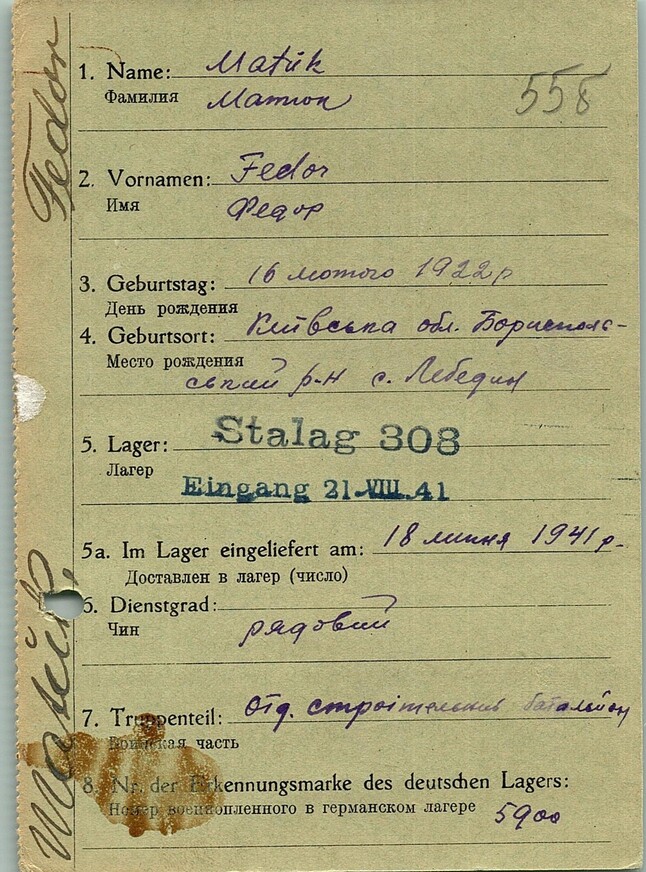 1. Name: Matük
Фамилия Матюк
558
2. Vornamen: Fedor
Имя Федор
3. Geburtstag: 16 лютого 1922 р
День рождения
4. Geburtsort: Київська обл. Бориспіль-
Место рождения
ський р-н с. Лебедин
5. Lager: Stalag 308
Лагер
Eingang 21.VIII.41
5a. Im Lager eingeliefert am: 18 липня 1941 р.
Доставлен в лагер (число)
6. Dienstgrad:
Чин рядовий
7. Truppenteil: Отд. строітельний батальйон
Воинская часть
8. Nr. der Erkennungsmarke des deutschen Lagers:
Номер военнопленного в германском лагере 5900
Matük, Fedor